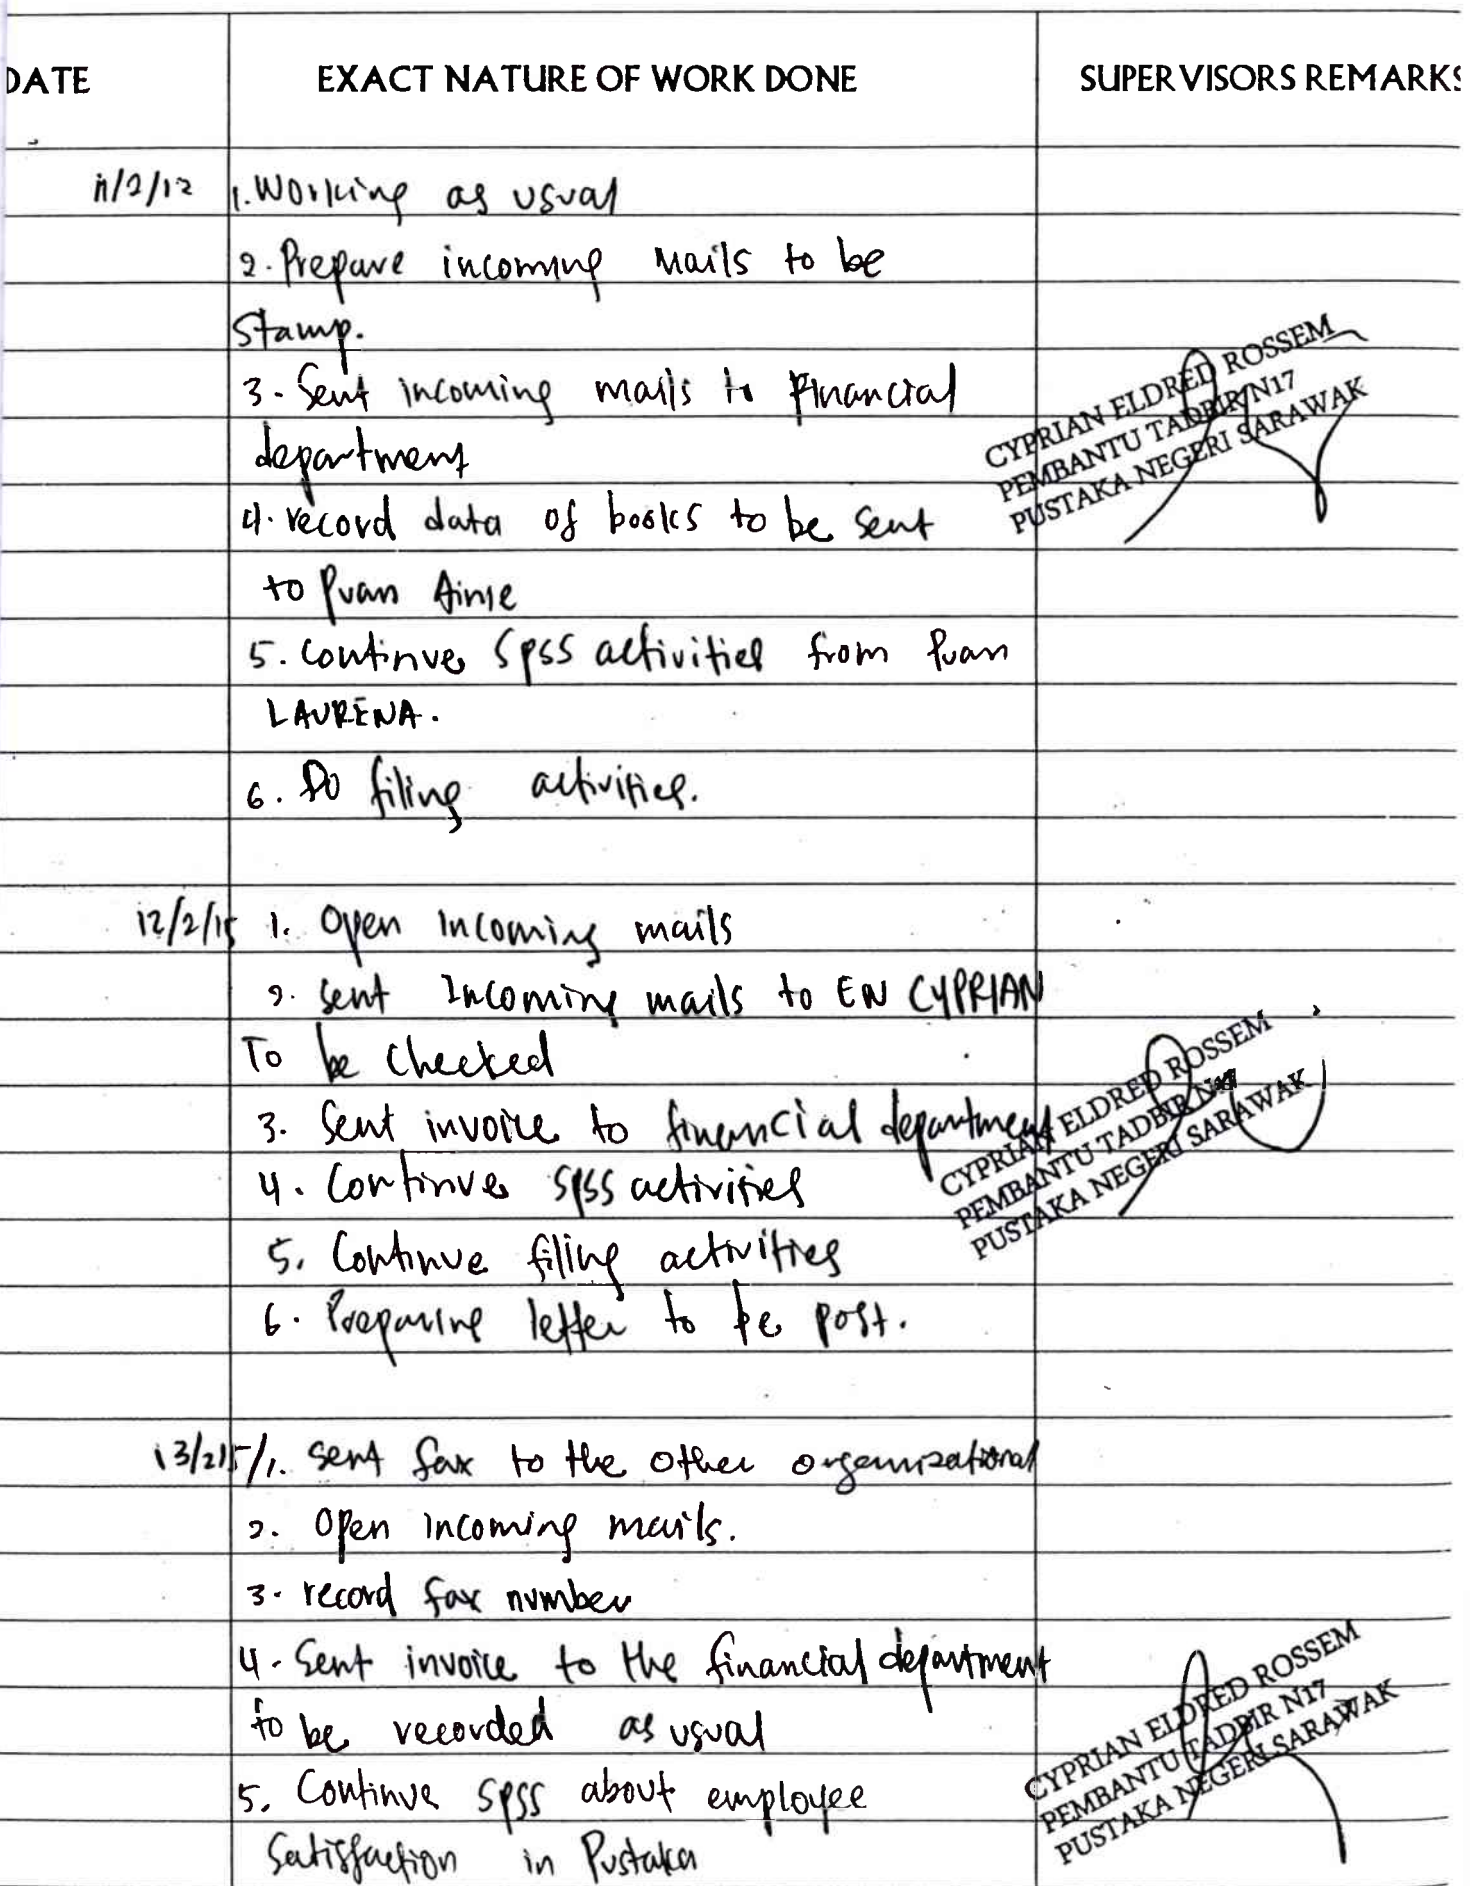 DATE EXACT NATURE OF WORK DONE SUPERVISORS REMARKS
11/2/12 1. Working as usual
2. Prepare incoming mails to be
stamp.
3. Sent incoming mails to Financial
department
4. record data of books to be sent
to Puan Ainie
5. continue SPSS activities from Puan
LAURENA.
6. Do filing activities.
CYPRIAN ELDRED ROSSEM
PEMBANTU TADBIR N17
PUSTAKA NEGERI SARAWAK
12/2/15 1. Open Incoming mails
2. sent Incoming mails to EN CYPRIAN
To be checked
3. Sent invoice to financial department
4. Continue SPSS activities
5. Continue filing activities
6. Preparing letter to be post.
CYPRIAN ELDRED ROSSEM
PEMBANTU TADBIR N17
PUSTAKA NEGERI SARAWAK
13/2/15/1. Sent fax to the other organizational
2. Open incoming mails.
3. record fax number
4. Sent invoice to the financial department
to be recorded as usual
5. Continue SPSS about employee
Satisfaction in Pustaka
CYPRIAN ELDRED ROSSEM
PEMBANTU TADBIR N17
PUSTAKA NEGERI SARAWAK